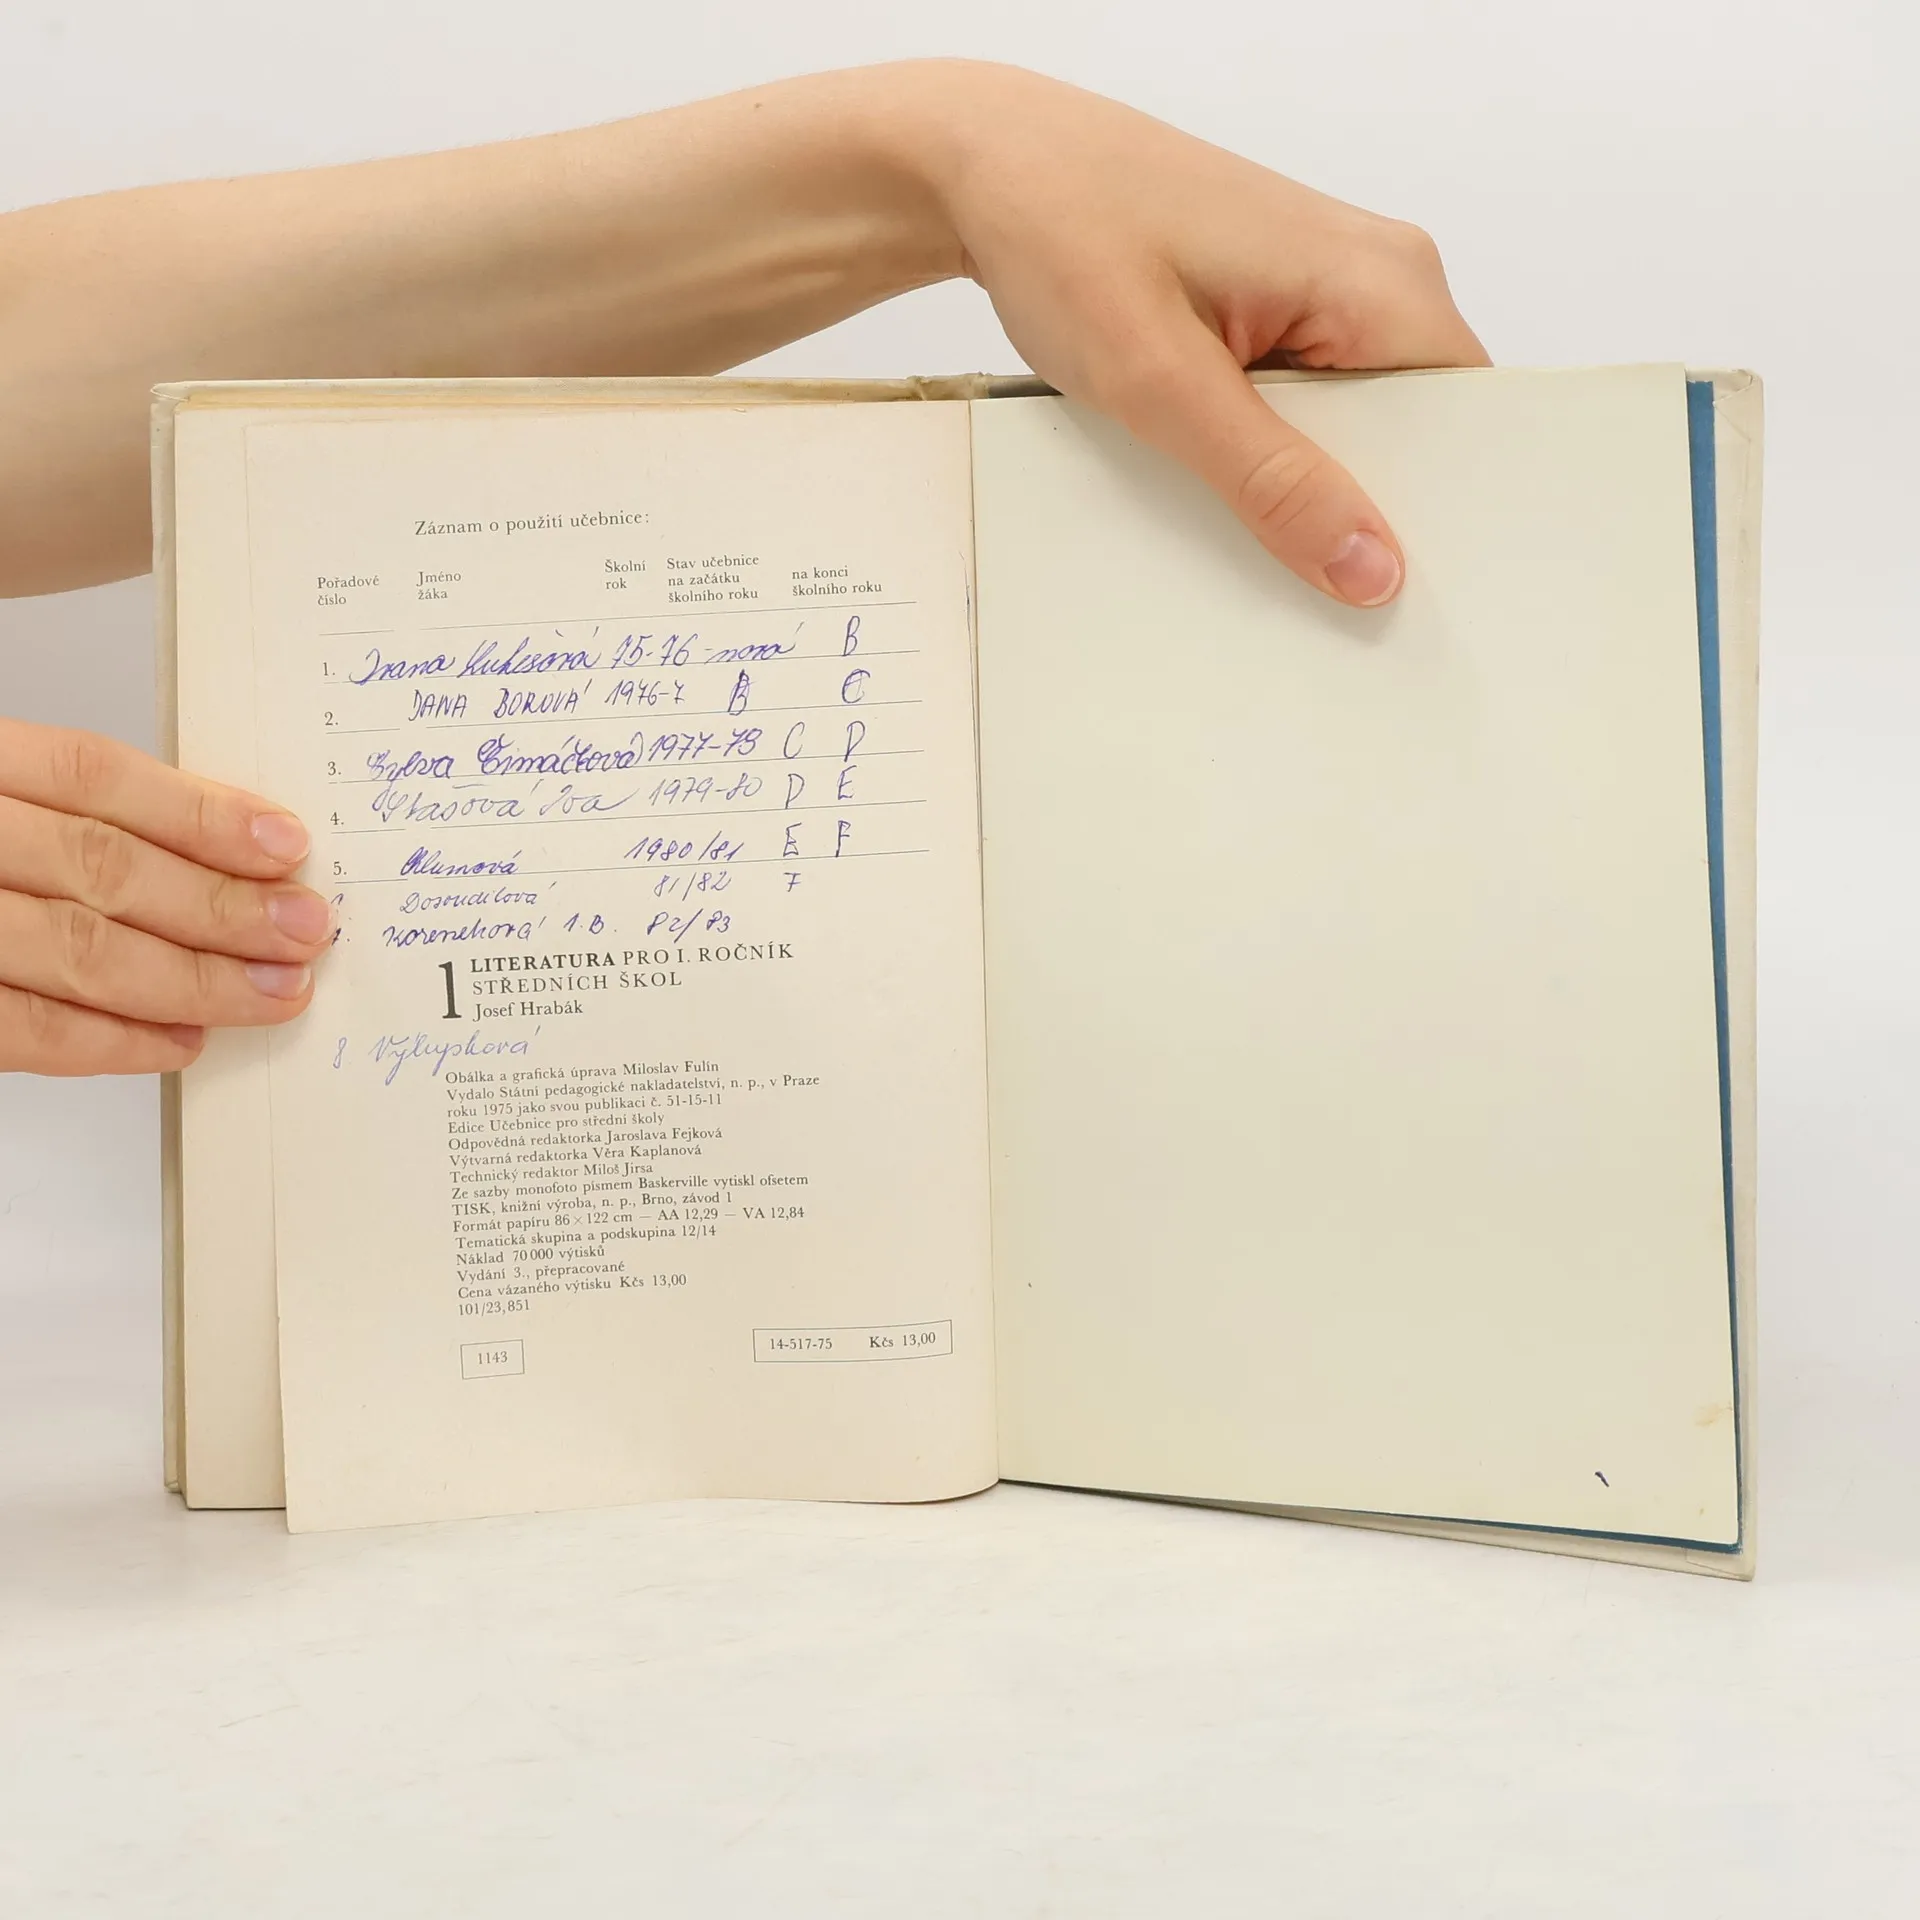 Záznam o použití učebnice:
Pořadové číslo
Jméno žáka
Školní rok
Stav učebnice na začátku školního roku
na konci školního roku
1. Ivana 75-76 nová B
2. DANA BOROVÁ 1976-7 B C
3. Sylva Šimáčková 1977-79 C D
4. Stašová Iva 1979-80 D E
5. Klumová 1980/81 E F
Dosoudilová 81/82 F
Korenehová 1.B. 82/83
1 LITERATURA PRO I. ROČNÍK
STŘEDNÍCH ŠKOL
Josef Hrabák
8 Vylupková
Obálka a grafická úprava Miloslav Fulín
Vydalo Státní pedagogické nakladatelství, n. p., v Praze
roku 1975 jako svou publikaci č. 51-15-11
Edice Učebnice pro střední školy
Odpovědná redaktorka Jaroslava Fejková
Výtvarná redaktorka Věra Kaplanová
Technický redaktor Miloš Jirsa
Ze sazby monofoto písmem Baskerville vytiskl ofsetem
TISK, knižní výroba, n. p., Brno, závod 1
Formát papíru 86×122 cm — AA 12,29 — VA 12,84
Tematická skupina a podskupina 12/14
Náklad 70 000 výtisků
Vydání 3., přepracované
Cena vázaného výtisku Kčs 13,00
101/23,851
1143
14-517-75 Kčs 13,00